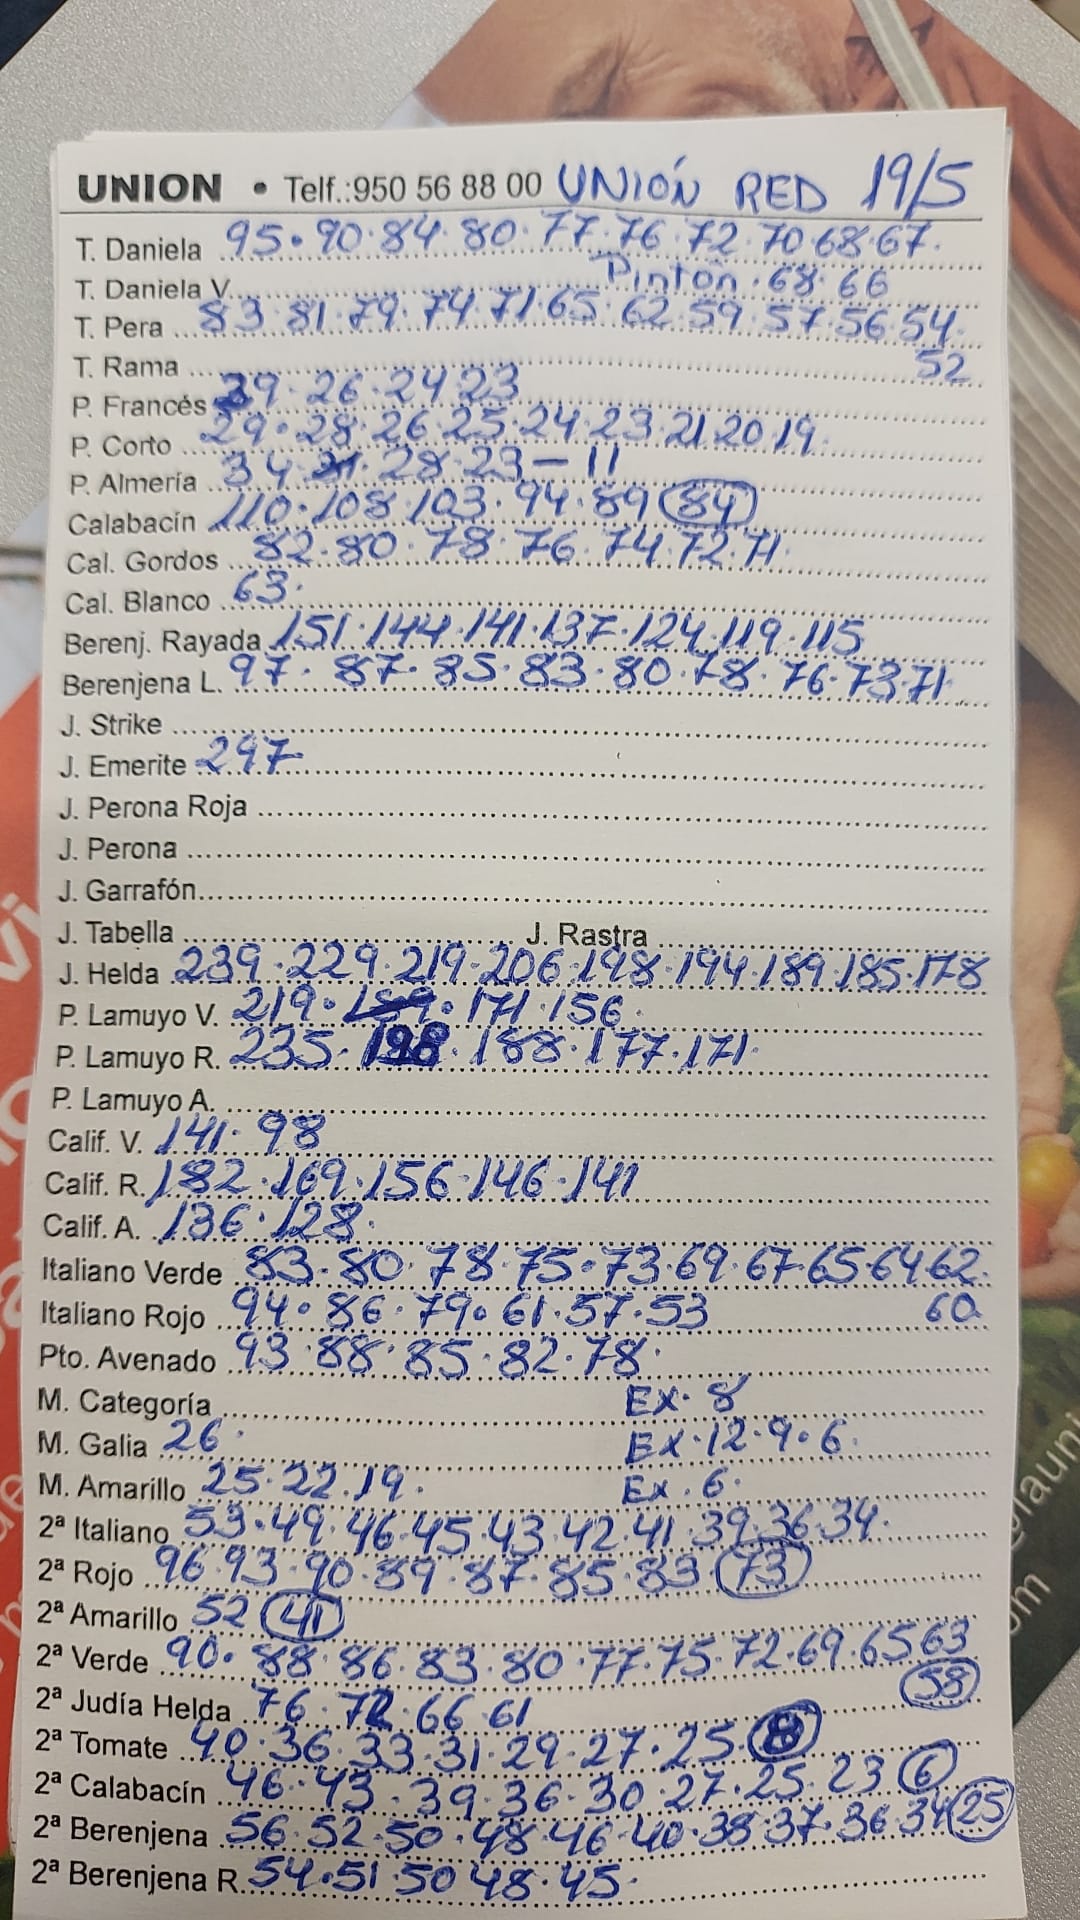 UNION • Telf.:950 56 88 00 UNIÓN RED 19/5
T. Daniela 95·90·84·80·77·76·72·70 68·67·
T. Daniela V. Pintón·68·66
T. Pera 83·81·79·74·71·65·62·59·57·56·54·
52
T. Rama
P. Francés 29·26·24·23
P. Corto 29·28·26·25·24·23·21·20·19·
P. Almería 34 28·23-11
Calabacín 110·108·103·94·89 84
Cal. Gordos 82·80·78·76·74·72·71·
Cal. Blanco 63·
Berenj. Rayada 151·144·141·137·124·119·115
Berenjena L. 97·87·85·83·80·78·76·73·71·
J. Strike
J. Emerite 297
J. Perona Roja
J. Perona
J. Garrafón
J. Tabella J. Rastra
J. Helda 239·229·219·206·198·194·189·185·178
P. Lamuyo V. 219·189·171·156·
P. Lamuyo R. 235·198·188·177·171·
P. Lamuyo A.
Calif. V. 141·98
Calif. R. 182·169·156·146·141
Calif. A. 136·128·
Italiano Verde 83·80·78·75·73·69·67·65·64·62·
60
Italiano Rojo 94·86·79·61·57·53
Pto. Avenado 93·88·85·82·78·
M. Categoría Ex·8
M. Galia 26· Ex·12·9·6·
M. Amarillo 25·22·19· Ex·6·
2ª Italiano 53·49·46·45·43·42·41·39·36·34·
2ª Rojo 96·93·90·89·87·85·83 73
2ª Amarillo 52 41
2ª Verde 90·88·86·83·80·77·75·72·69·65 63
58
2ª Judía Helda 76·72·66·61
2ª Tomate 40·36·33·31·29·27·25 8
2ª Calabacín 46·43·39·36·30·27·25·23 6
2ª Berenjena 56·52·50·48·46·40·38·37·36·34 25
2ª Berenjena R. 54·51·50 48·45·